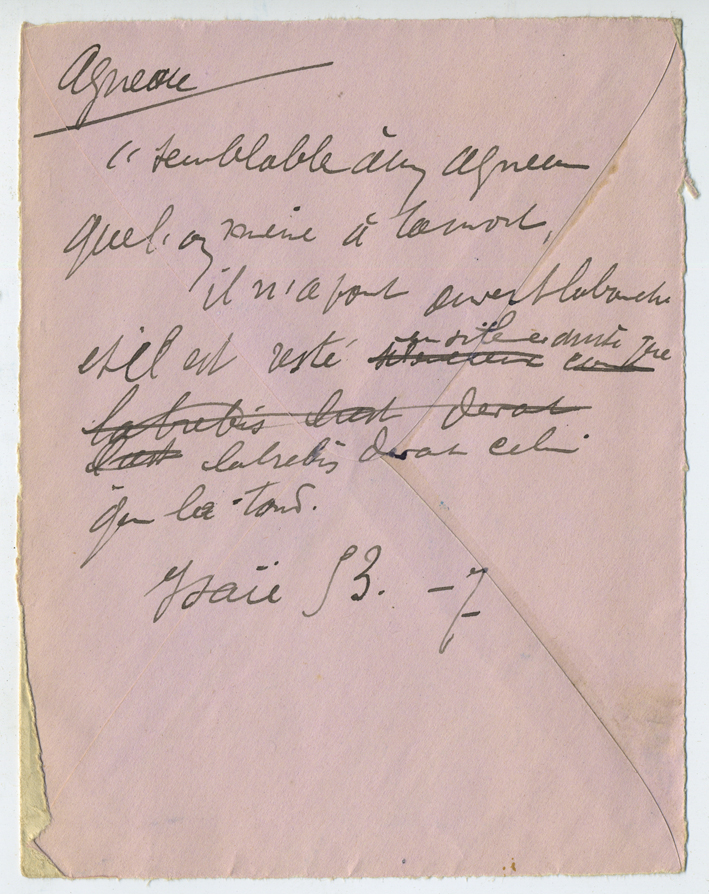 Agneau
“ semblable à un agneau
que l'on mène à la mort,
il n'a point ouvert la bouche
et il est resté en silence ainsi que
la brebis devant
la brebis devant celui
qui la tond.
Isaïe 53. - 7